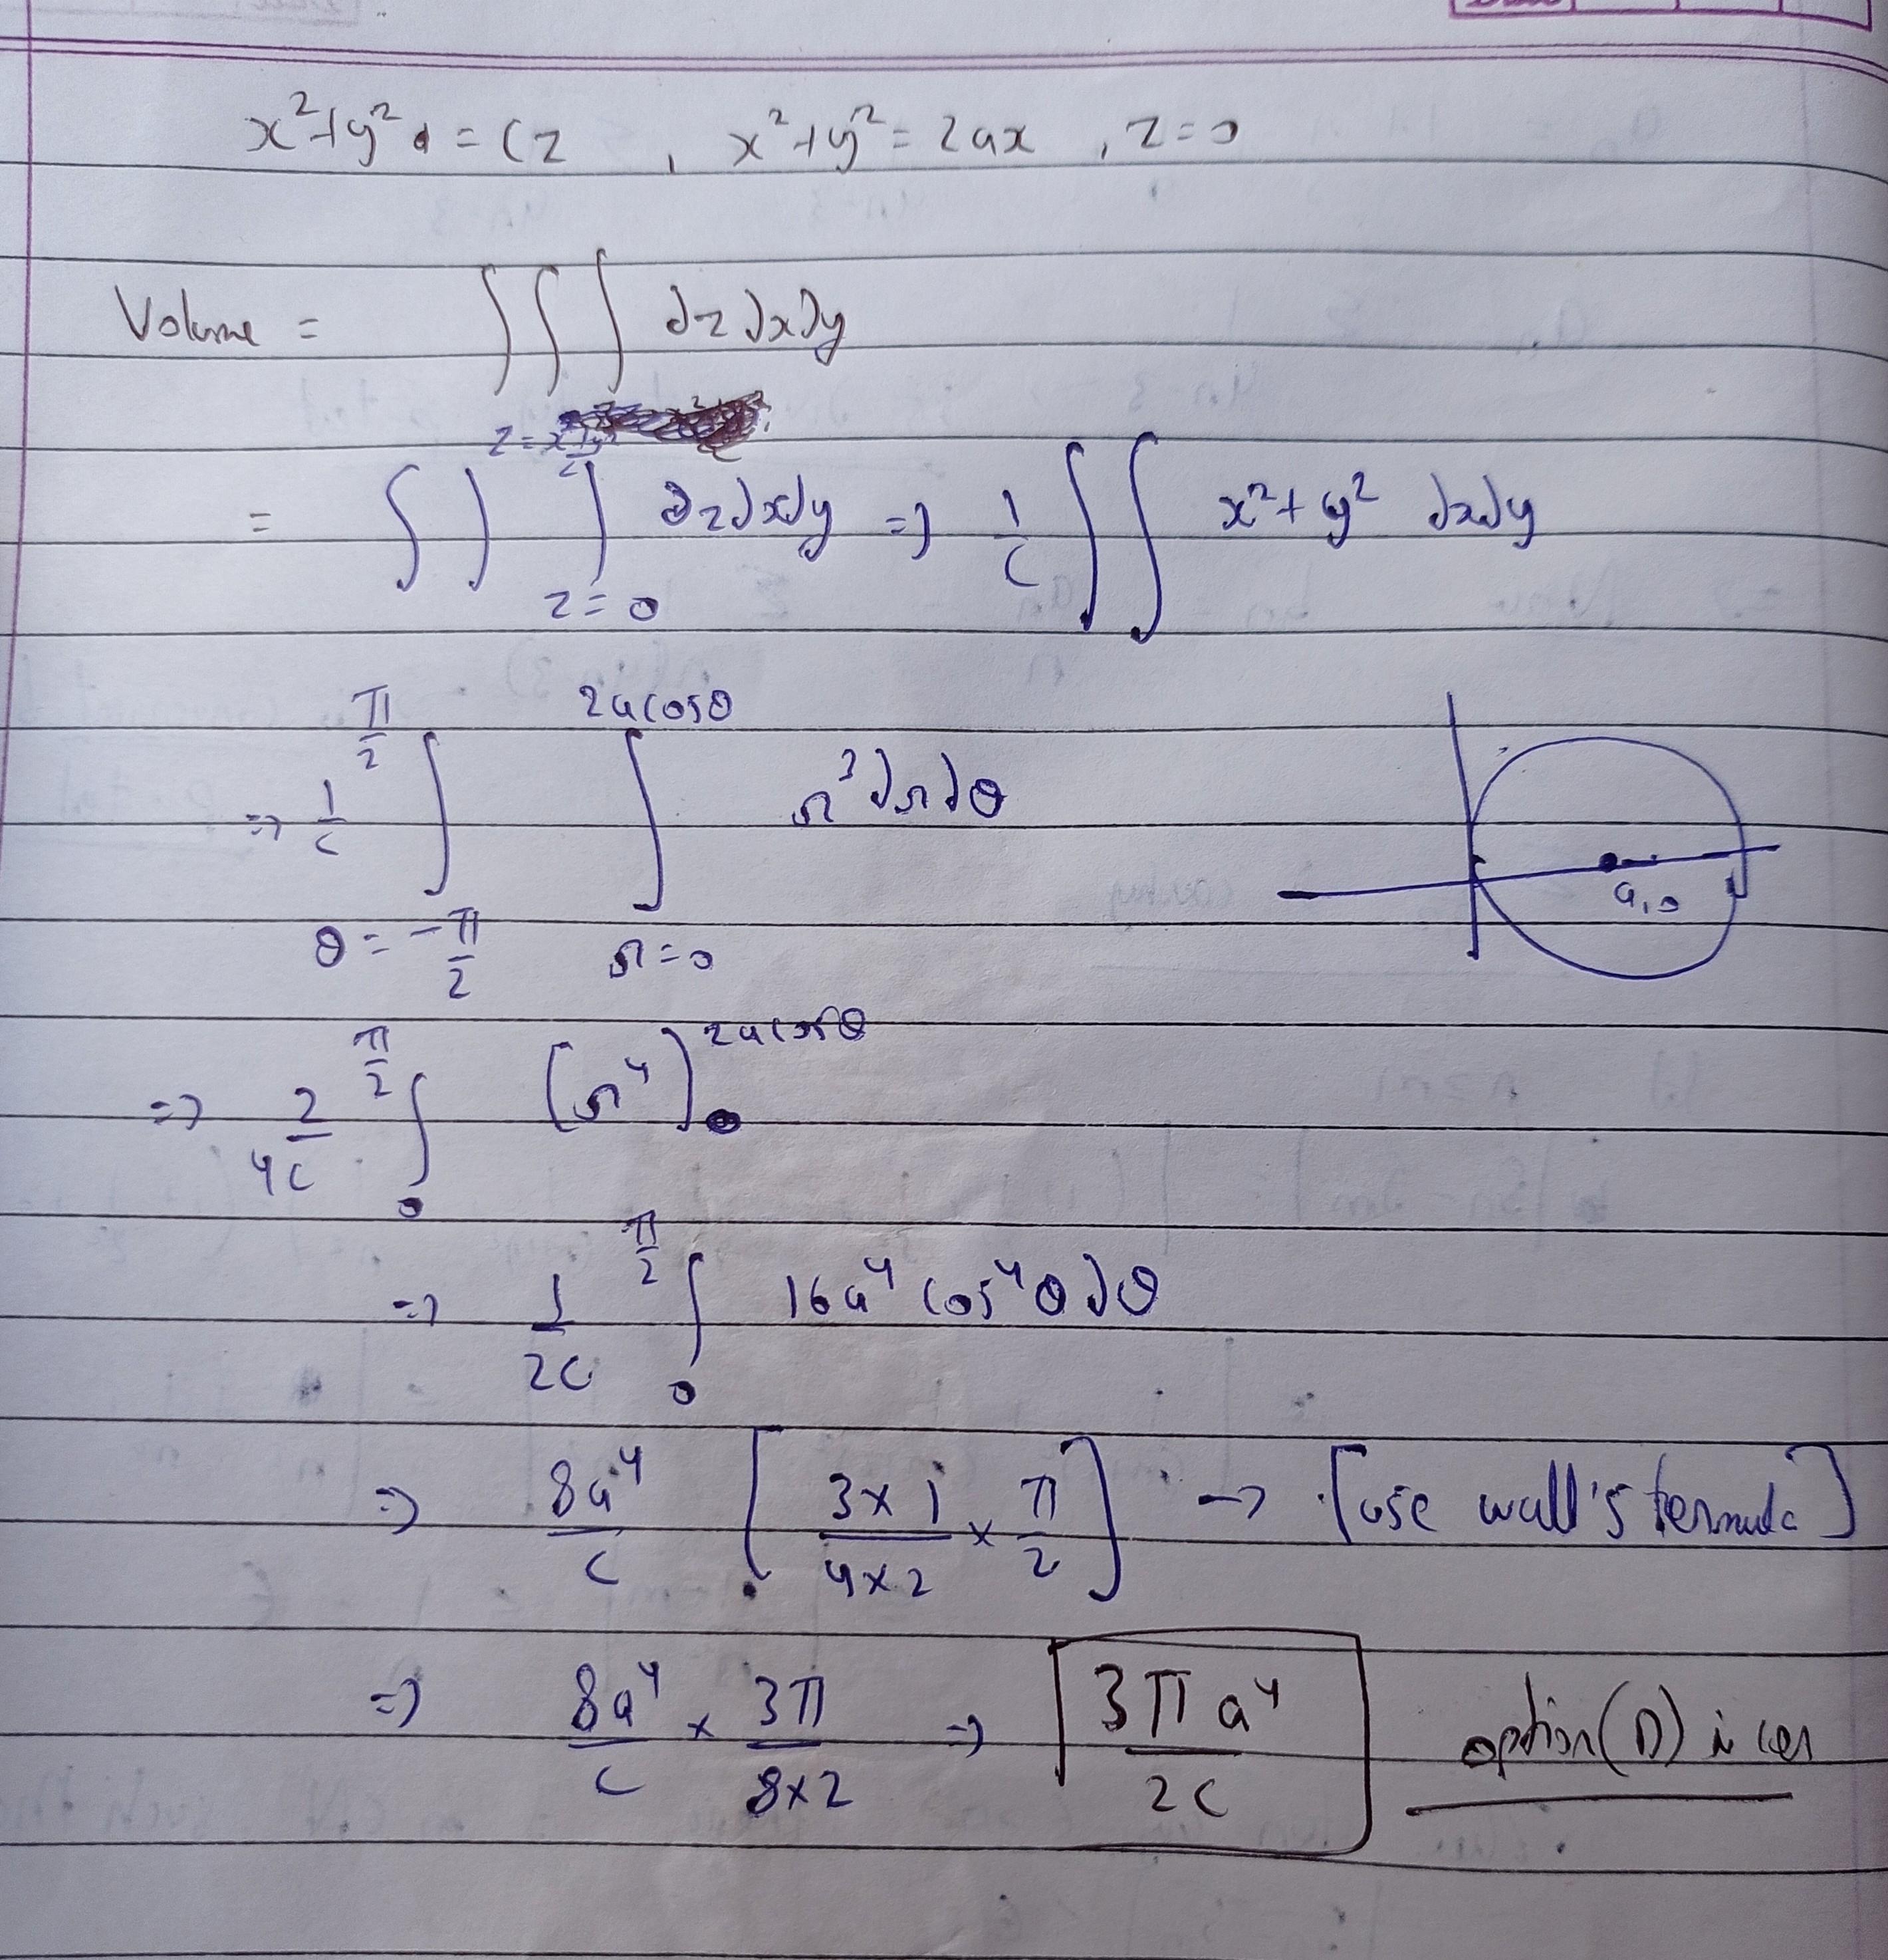 x²+y² = cz , x²+y² = 2ax , z=0
Volume = ∫∫∫ dz dx dy
= ∫∫∫_{z=0}^{z=x²+y²/c} dz dx dy => 1/c ∫∫ x²+y² dx dy
=> 1/c ∫_{θ=-π/2}^{π/2} ∫_{r=0}^{2a cosθ} r³ dr dθ
a,0
=> 2/4c ∫_0^{π/2} [r⁴]_0^{2a cosθ}
=> 1/2c ∫_0^{π/2} 16a⁴ cos⁴θ dθ
=> 8a⁴/c [3×1/4×2 × π/2] -> [use wall's formula]
=> 8a⁴/c × 3π/8×2 => 3πa⁴/2c option (D) is